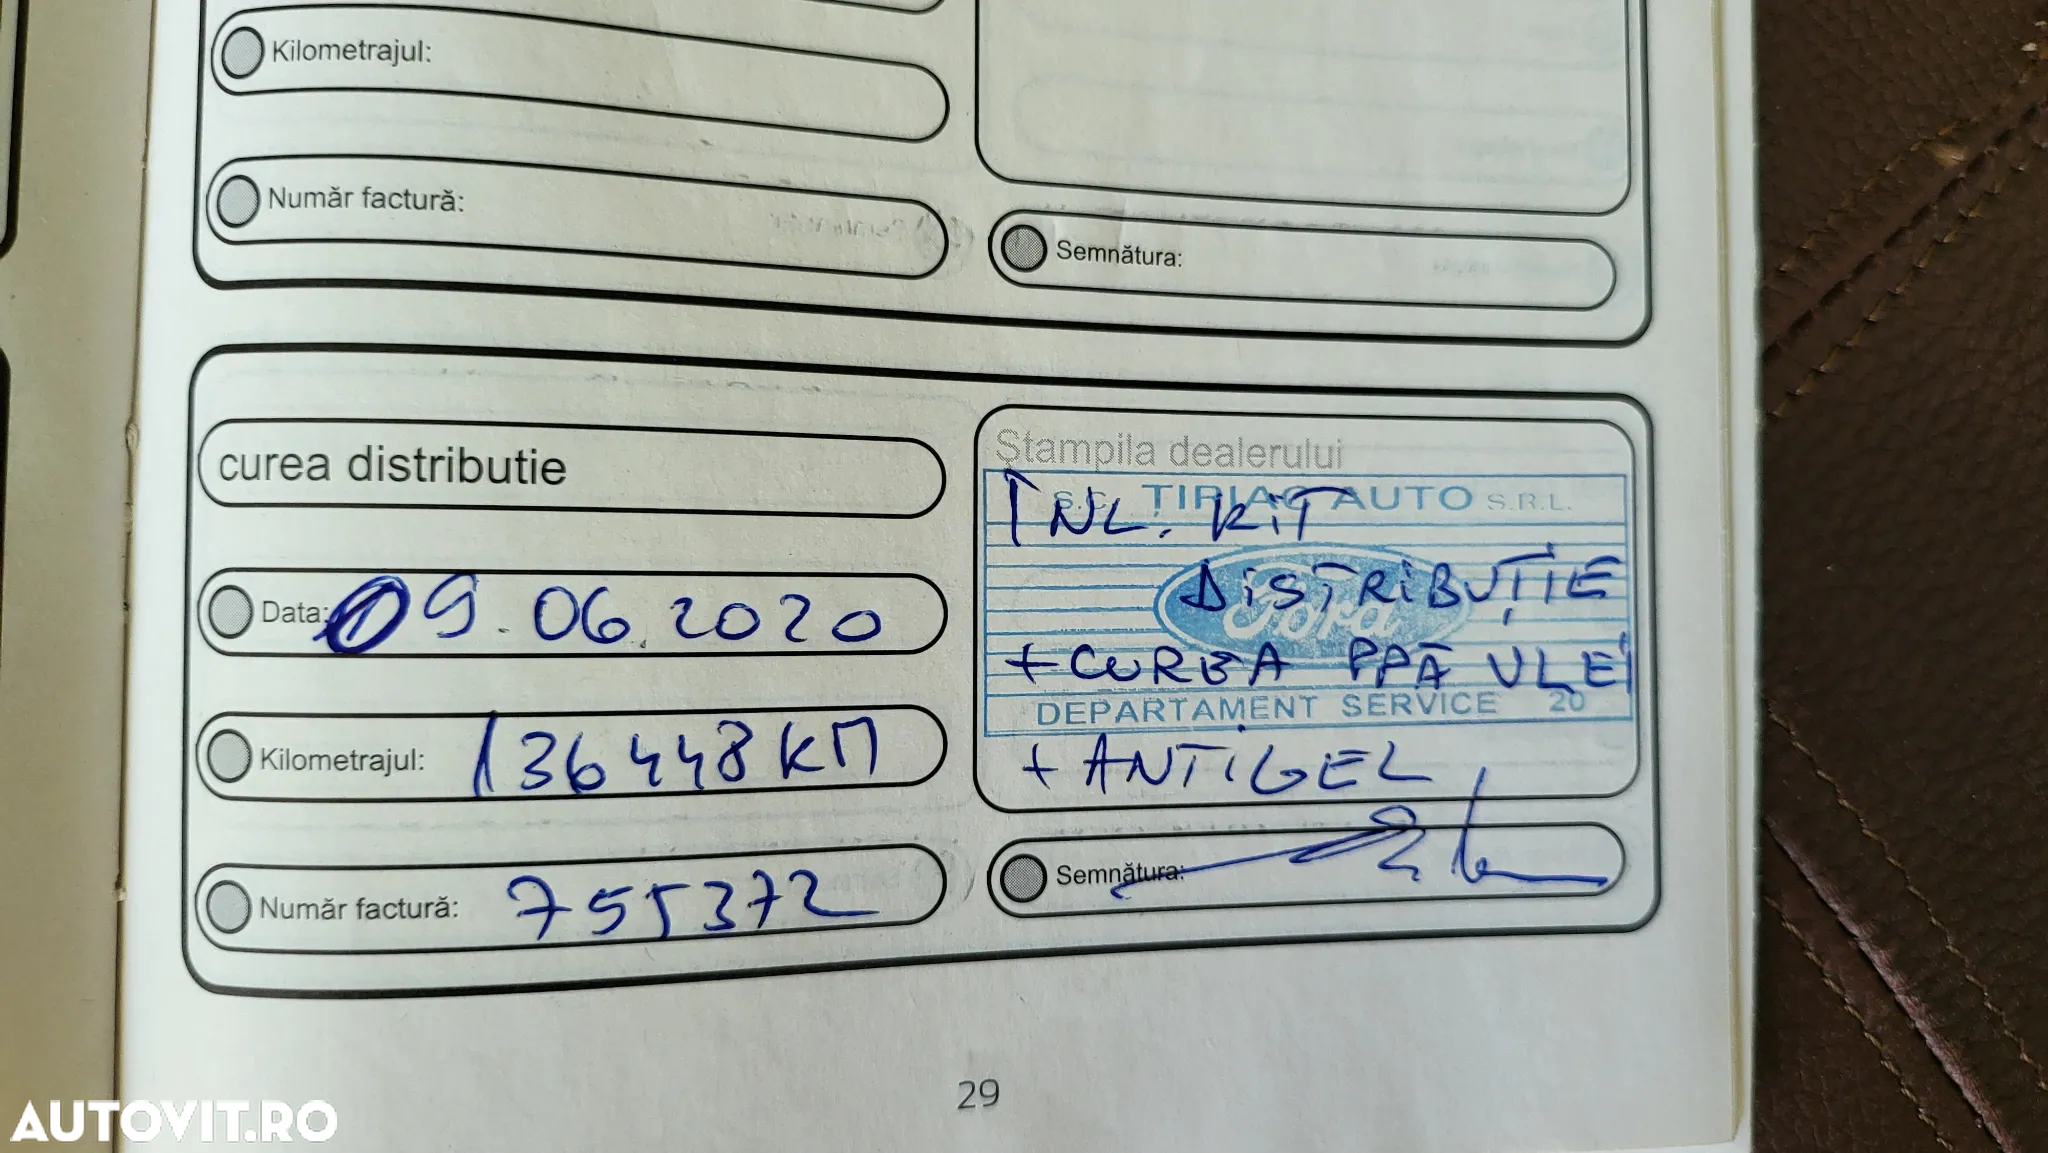 Kilometrajul:
Număr factură:
Semnătura:
curea distributie
Data: 09.06.2020
Kilometrajul: 136448 KM
Număr factură: 755372
Ștampila dealerului
S.C. ȚIRIAC AUTO S.R.L.
ÎNL. KIT
Ford
DISTRIBUȚIE
+ CUREA PPĂ ULEI
DEPARTAMENT SERVICE 20
+ ANTIGEL
Semnătura:
29
AUTOVIT.RO